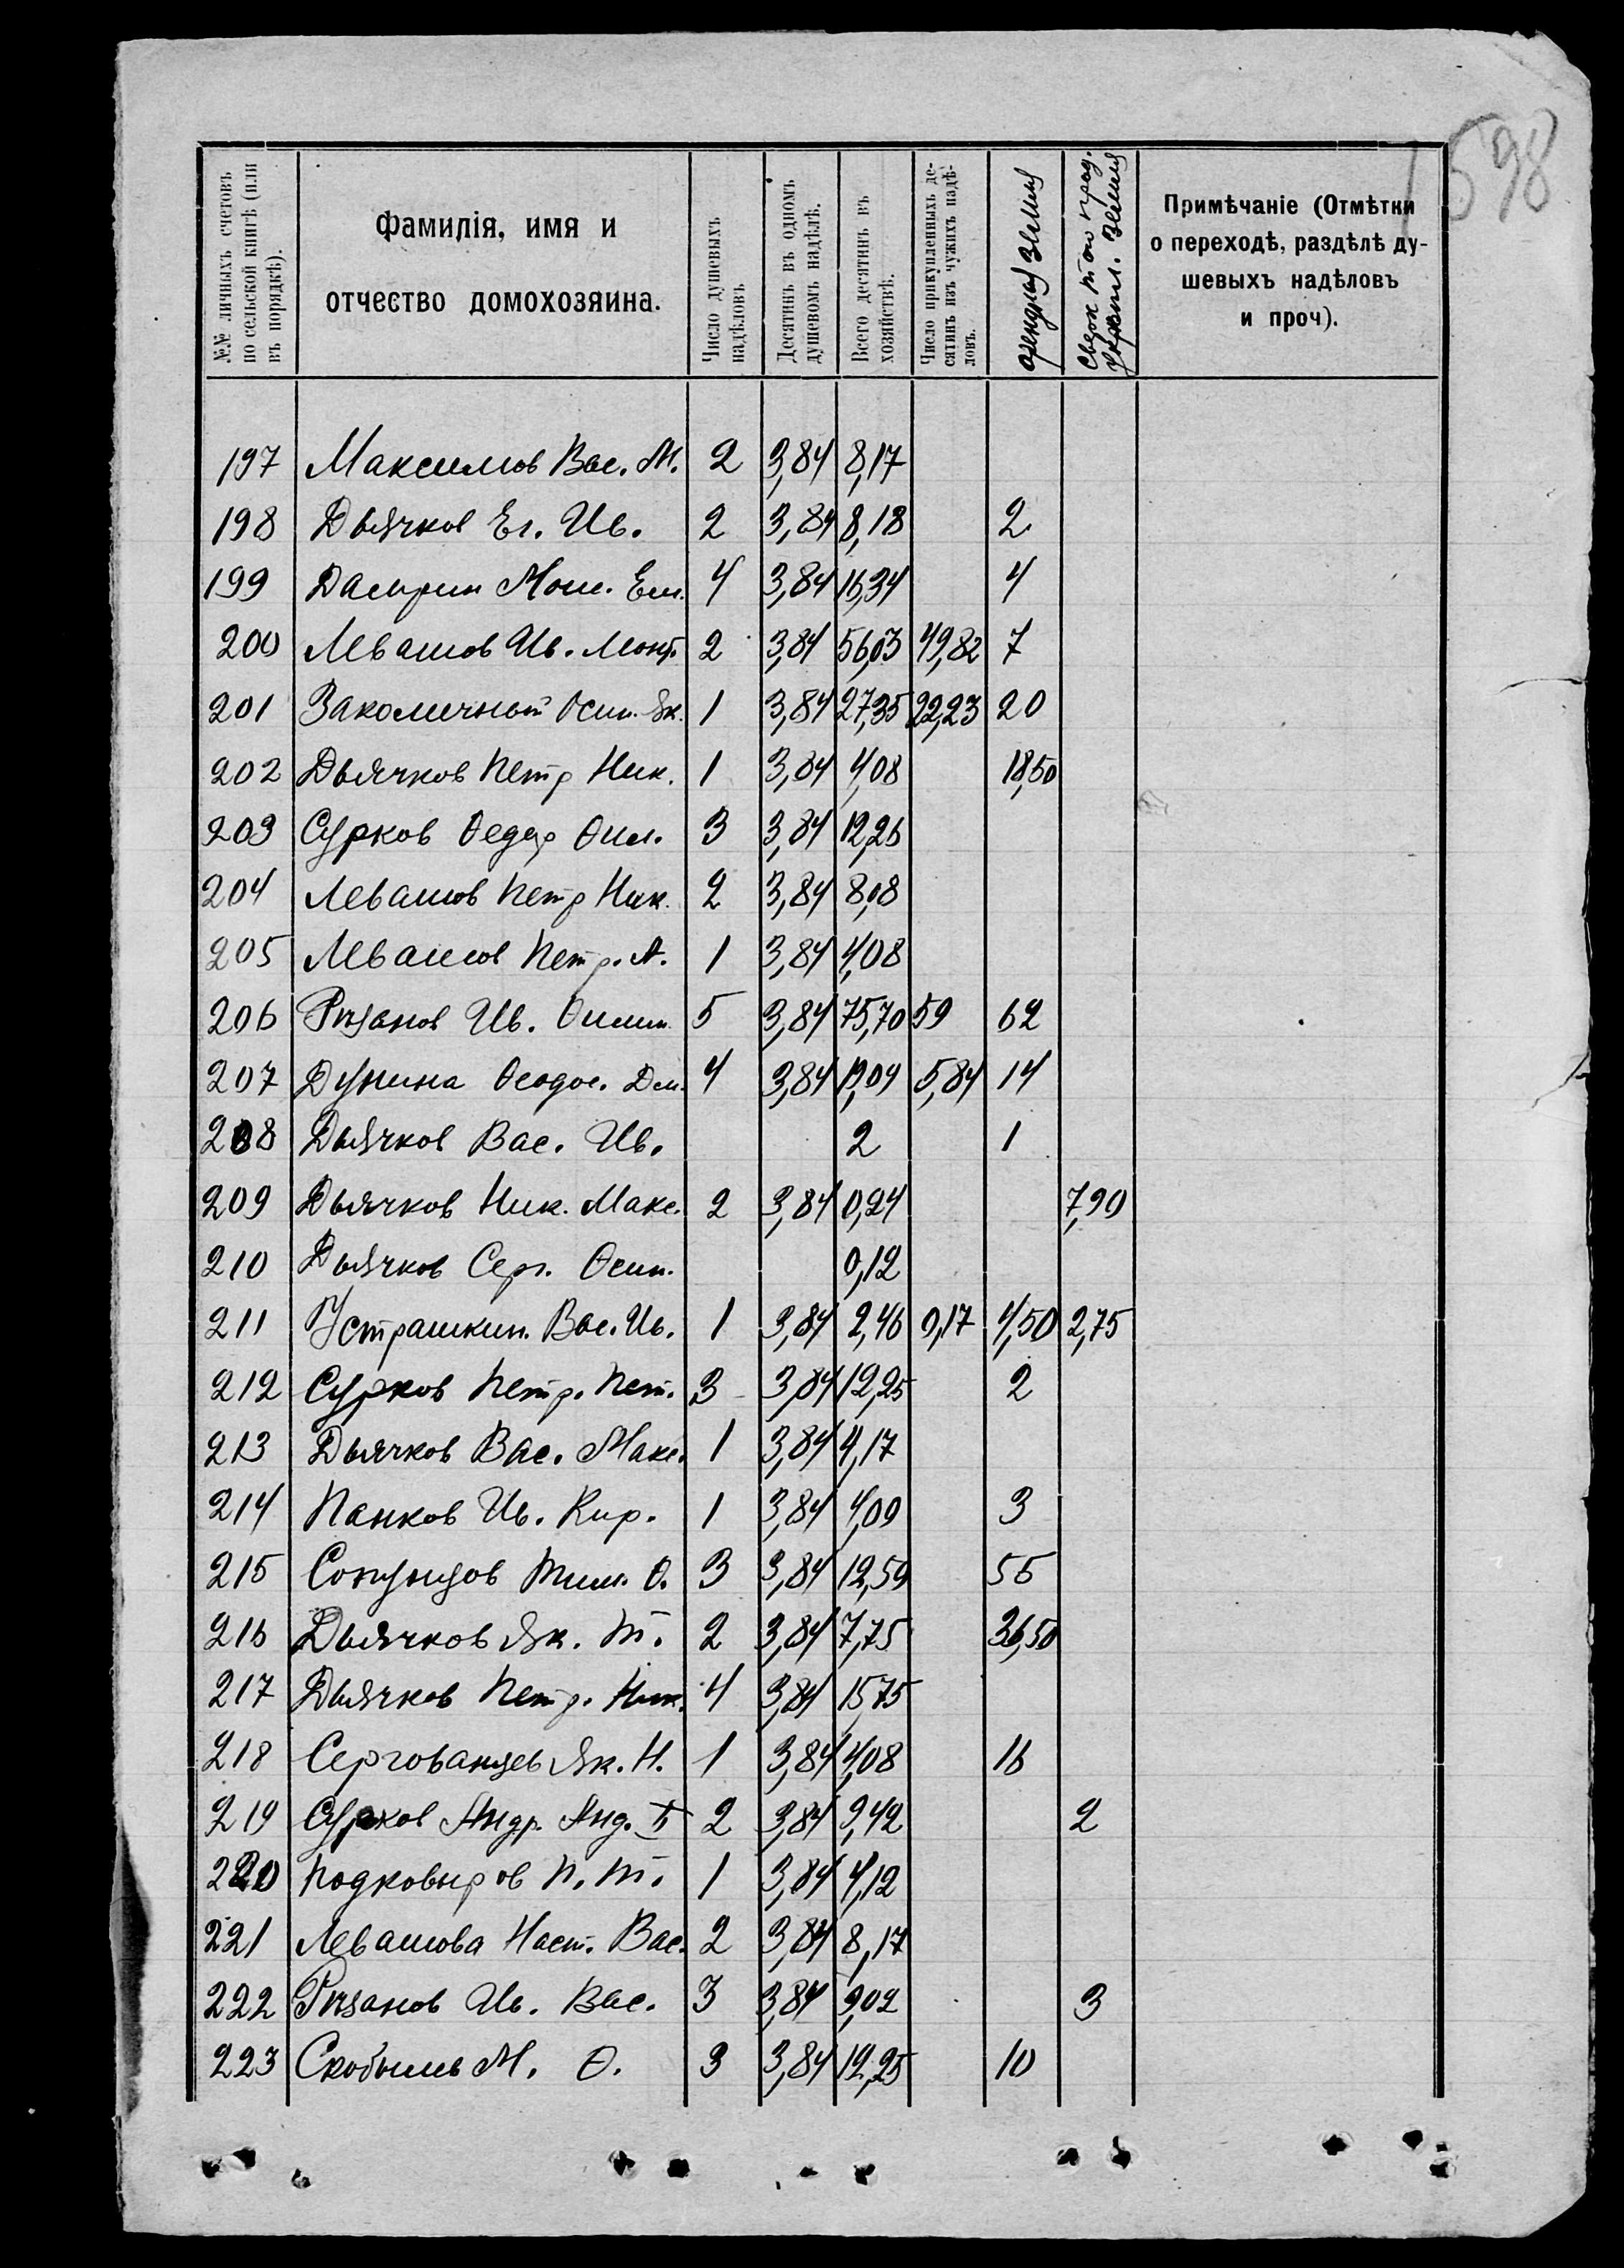 598
№№ личныхъ счетовъ по сельской книгѣ (или въ порядкѣ).
Фамилія, имя и отчество домохозяина.
Число душевыхъ надѣловъ
Десятинъ въ одномъ душевомъ надѣлѣ.
Всего десятинъ въ хозяйствѣ.
Число прикупленныхъ десятинъ изъ чужихъ надѣловъ.
земля
Сверх того земля
Примѣчаніе (Отмѣтки
о переходѣ, раздѣлѣ ду-
шевыхъ надѣловъ
и проч).
197 Максимов Вас. М. 2 3,84 8,17
198 Дьячков Ег. Ив. 2 3,84 8,18 2
199 4 3,84 16,34 4
200 Левашов Ив. 2 3,84 56,03 49,82 7
201 Закомичный Осип. Як. 1 3,84 27,35 22,23 20
202 Дьячков Петр Ник. 1 3,84 4,08 18,50
203 Сурков Ѳедор Ѳил. 3 3,84 12,26
204 Левашов Петр Ник. 2 3,84 8,08
205 Левашов Петр. А. 1 3,84 4,08
206 Рязанов Ив. 5 3,84 75,70 59 62
207 Дунина Ѳеодос. Дм. 4 3,84 5,84 14
208 Дьячков Вас. Ив. 2 1
209 Дьячков Ник. Макс. 2 3,84 0,24 7,90
210 Дьячков Серг. Осип. 0,12
211 Устрашкин. Вас. Ив. 1 3,84 2,46 0,17 4,50 2,75
212 Сурков Петр. Пет. 3 3,84 12,25 2
213 Дьячков Вас. Макс. 1 3,84 4,17
214 Панков Ив. Кир. 1 3,84 4,09 3
215 Тим. Ѳ. 3 3,84 12,59 55
216 Дьячков Як. Т. 2 3,84 7,75 36,50
217 Дьячков Петр. Ник. 4 3,84 15,75
218 Сергованцев Як. Н. 1 3,84 4,08 16
219 Сурков Андр. Анд. 2 3,84 9,42 2
220 Подковыров П. Т. 1 3,84 4,12
221 Левашова Наст. Вас. 2 3,84 8,17
222 Рязанов Ив. Вас. 3 3,84 9,02 3
223 М. Ѳ. 3 3,84 12,25 10